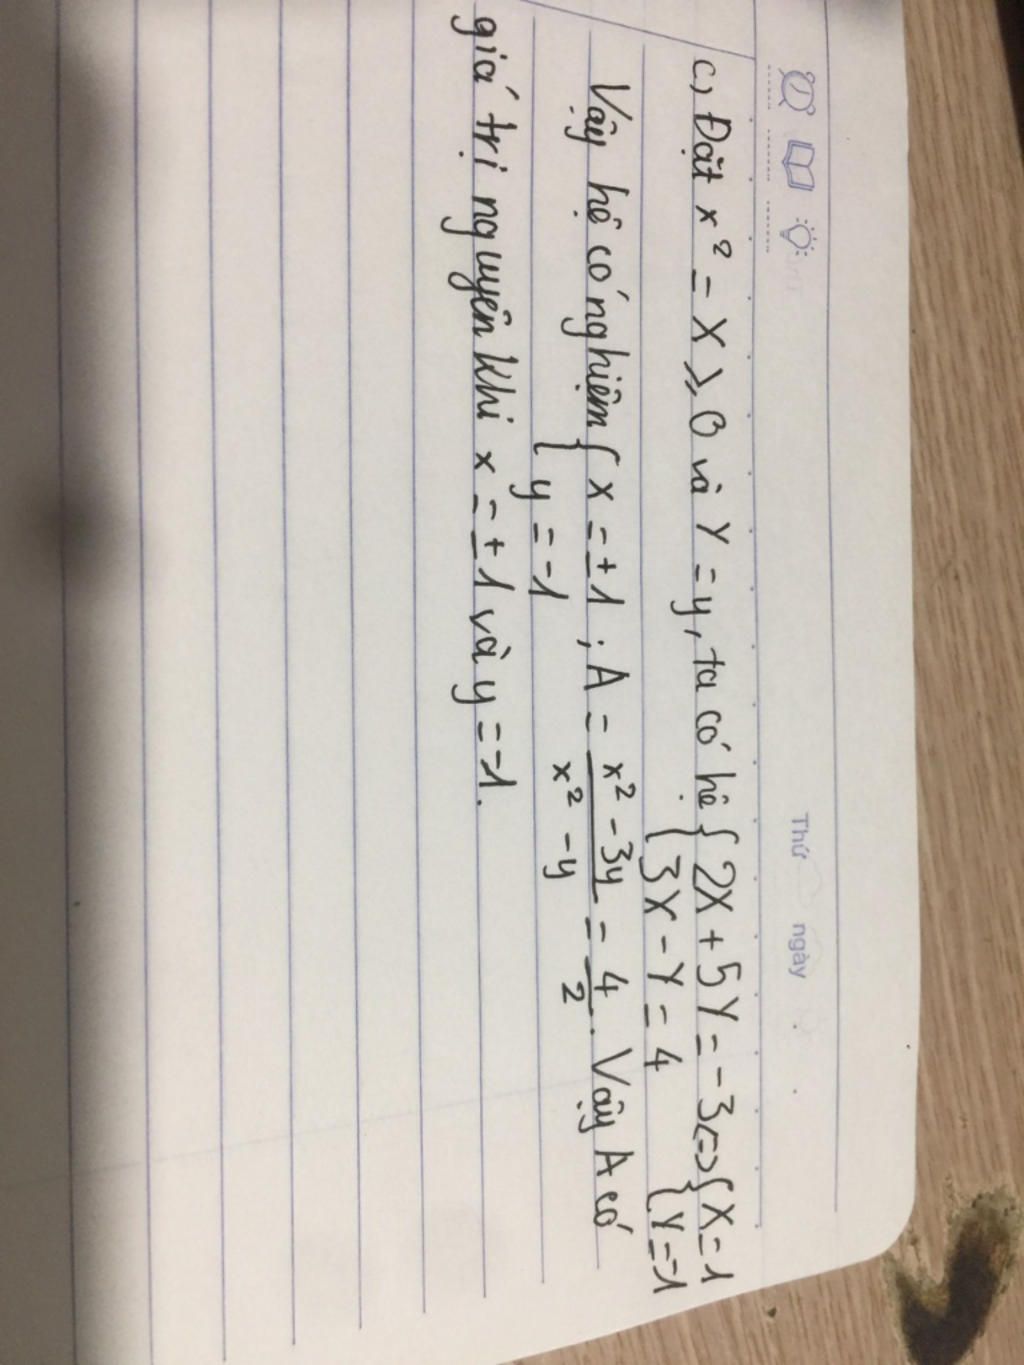 Thứ ngày
c) Đặt x² = X ≥ 0 và Y = y, ta có hệ { 2X + 5Y = -3 <=> { X = 1
{ 3X - Y = 4 { Y = -1
Vậy hệ có nghiệm { x = ±1 ; A = x² - 3y / x² - y = 4/2. Vậy A có
{ y = -1
giá trị nguyên khi x = ±1 và y = -1.